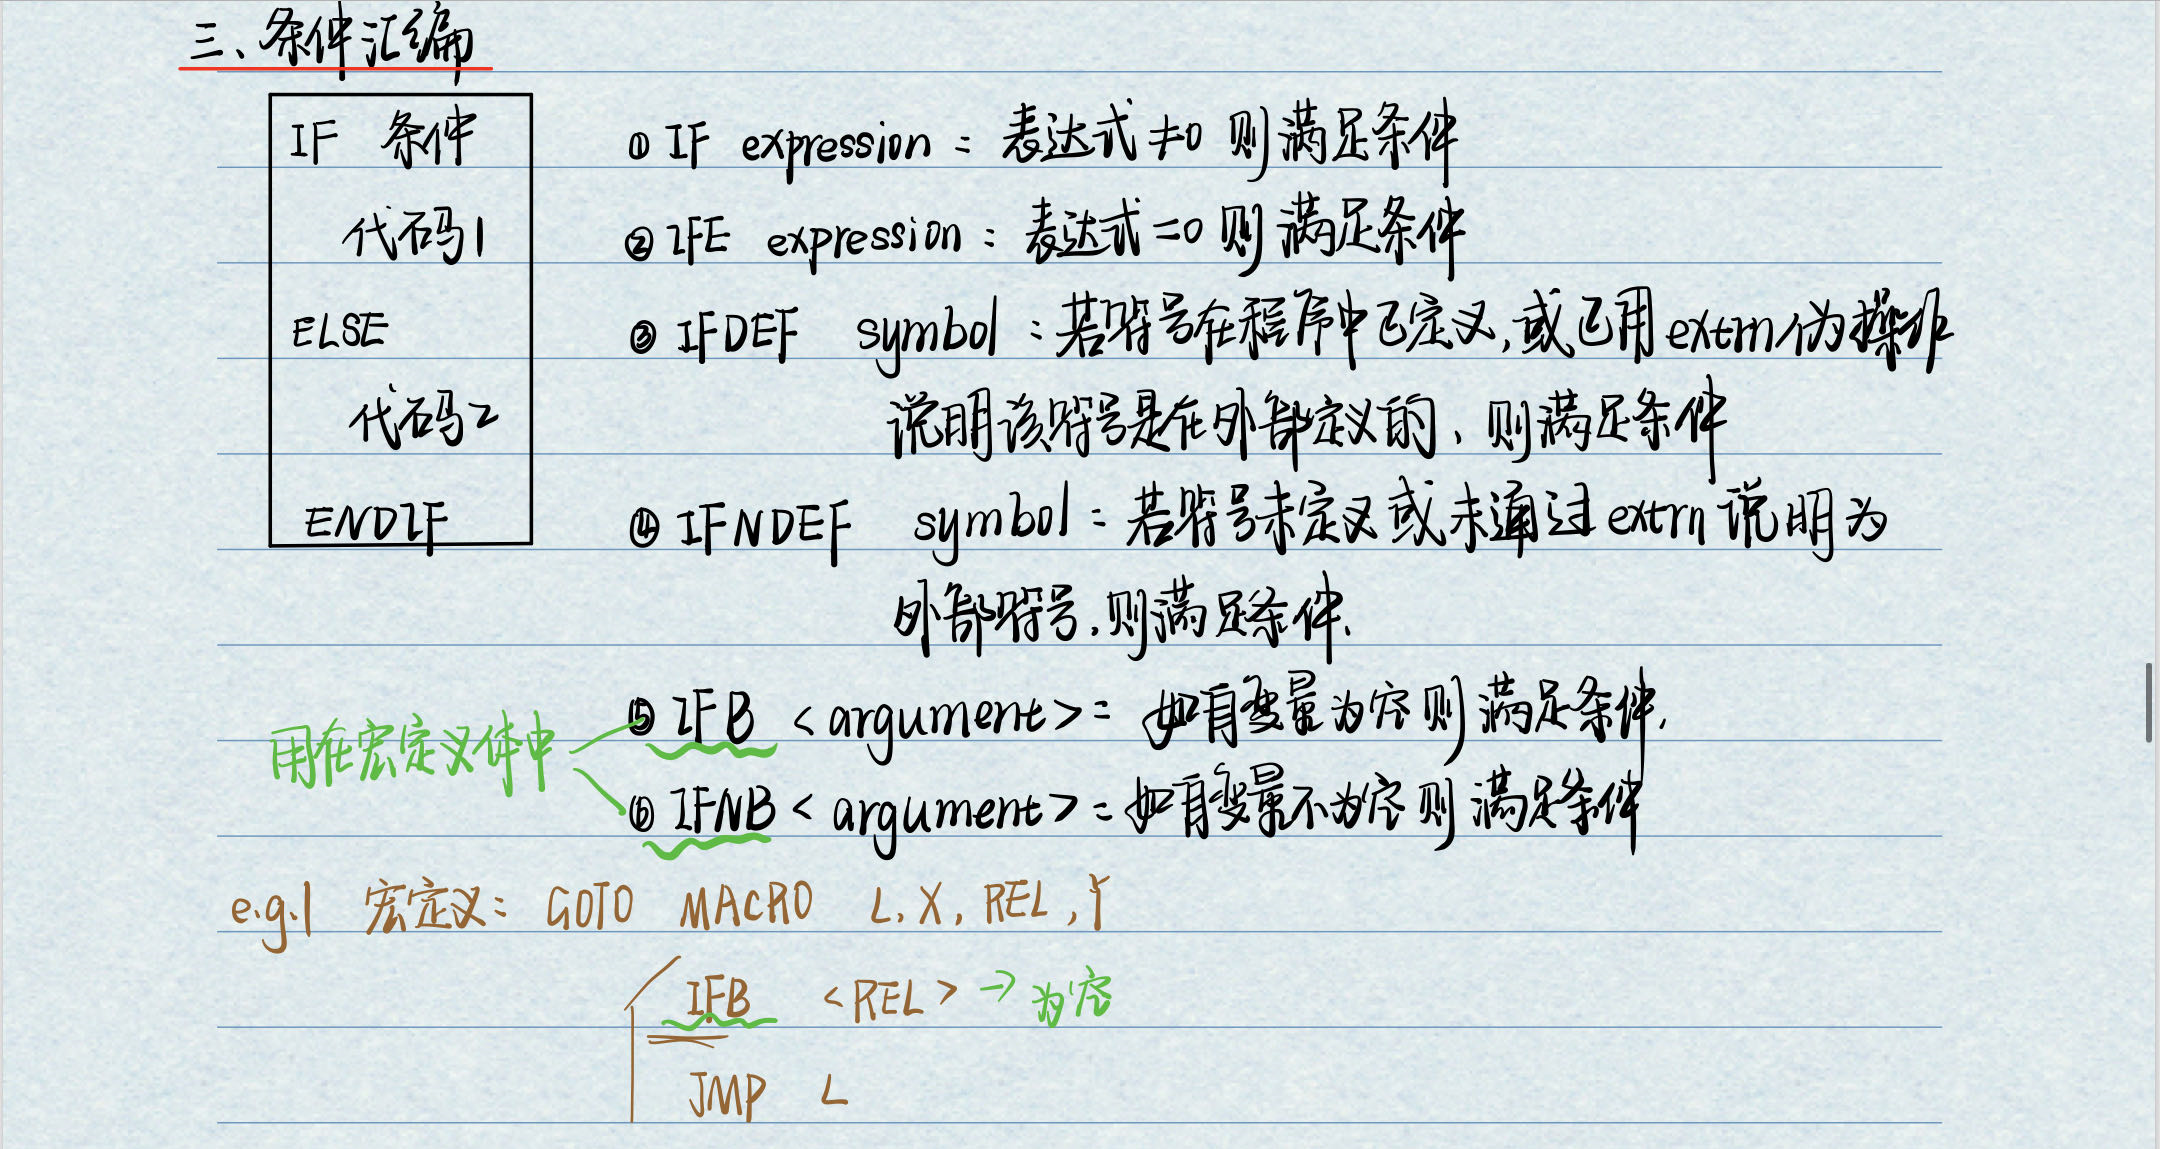 三、条件汇编
IF 条件
代码1
ELSE
代码2
ENDIF
① IF expression：表达式≠0 则满足条件
② IFE expression：表达式=0 则满足条件
③ IFDEF symbol：若符号在程序中已定义,或已用extrn伪操作
说明该符号是在外部定义的、则满足条件
④ IFNDEF symbol：若符号未定义或未通过extrn说明为
外部符号,则满足条件.
用在宏定义体中
⑤ IFB <argument>：如自变量为空则满足条件.
⑥ IFNB <argument>：如自变量不为空则满足条件
e.g.1 宏定义： GOTO MACRO L, X, REL, Y
IFB <REL> → 为空
JMP L